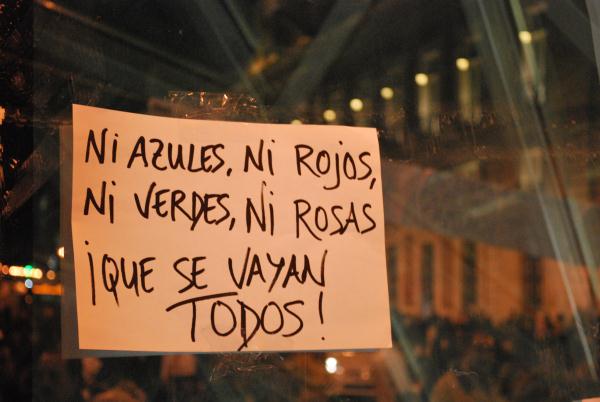 Ni AZULES, Ni ROJOS,
Ni VERDES, Ni ROSAS
¡QUE SE VAYAN
TODOS!